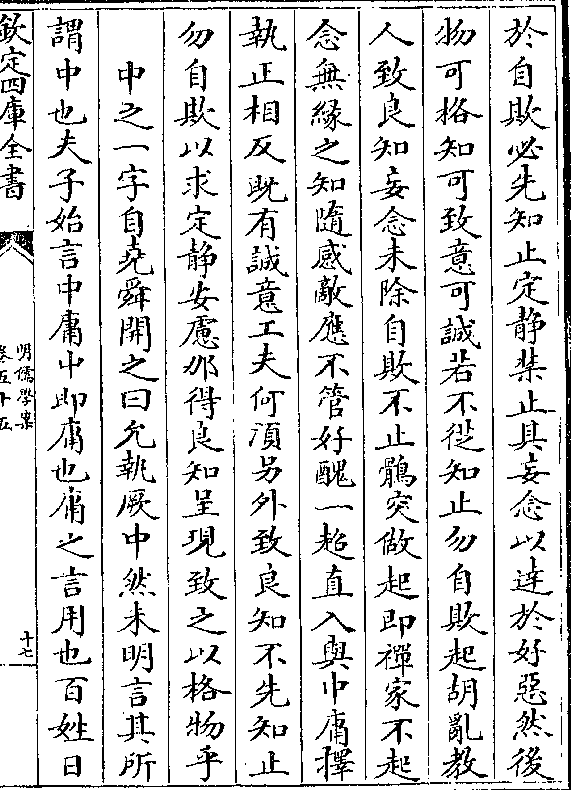 於自欺必先知止定静禁止其妄念以達於好惡然後
物可格知可致意可誠若不從知止勿自欺起胡亂教
人致良知妄念未除自欺不止鶻突做起即禪家不起
念無縁之知隨感敵應不管好醜一超直入與中庸擇
執正相反既有誠意工夫何須另外致良知不先知止
勿自欺以求定静安慮那得良知呈現致之以格物乎
中之一字自堯舜開之曰允執厥中然未明言其所
謂中也夫子始言中庸中即庸也庸之言用也百姓日
欽定四庫全書
明儒學案
卷五十五
十七